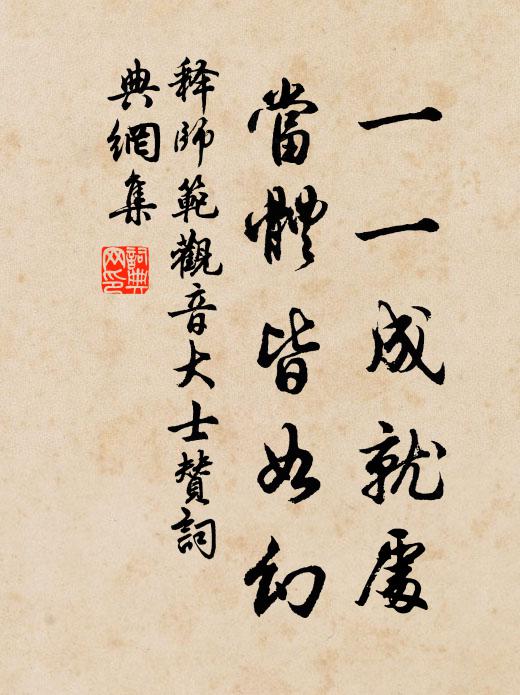 一一成就處
當體皆如幻
释師範觀音大士贊詞
典網集
詞典網印